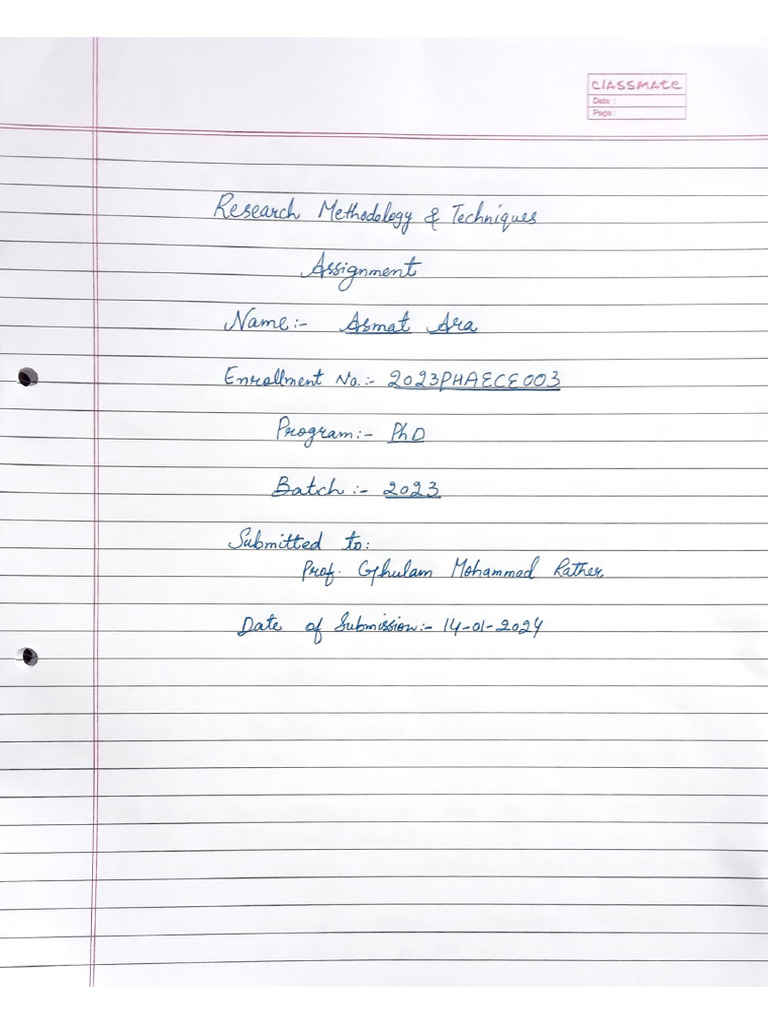 classmate
Date :
Page :
Research Methodology & Techniques
Assignment
Name:- Asmat Ara
Enrollment No.:- 2023PHAECE003
Program:- PhD
Batch:- 2023
Submitted to:
Prof. Ghulam Mohammad Rather.
Date of Submission:- 14-01-2024